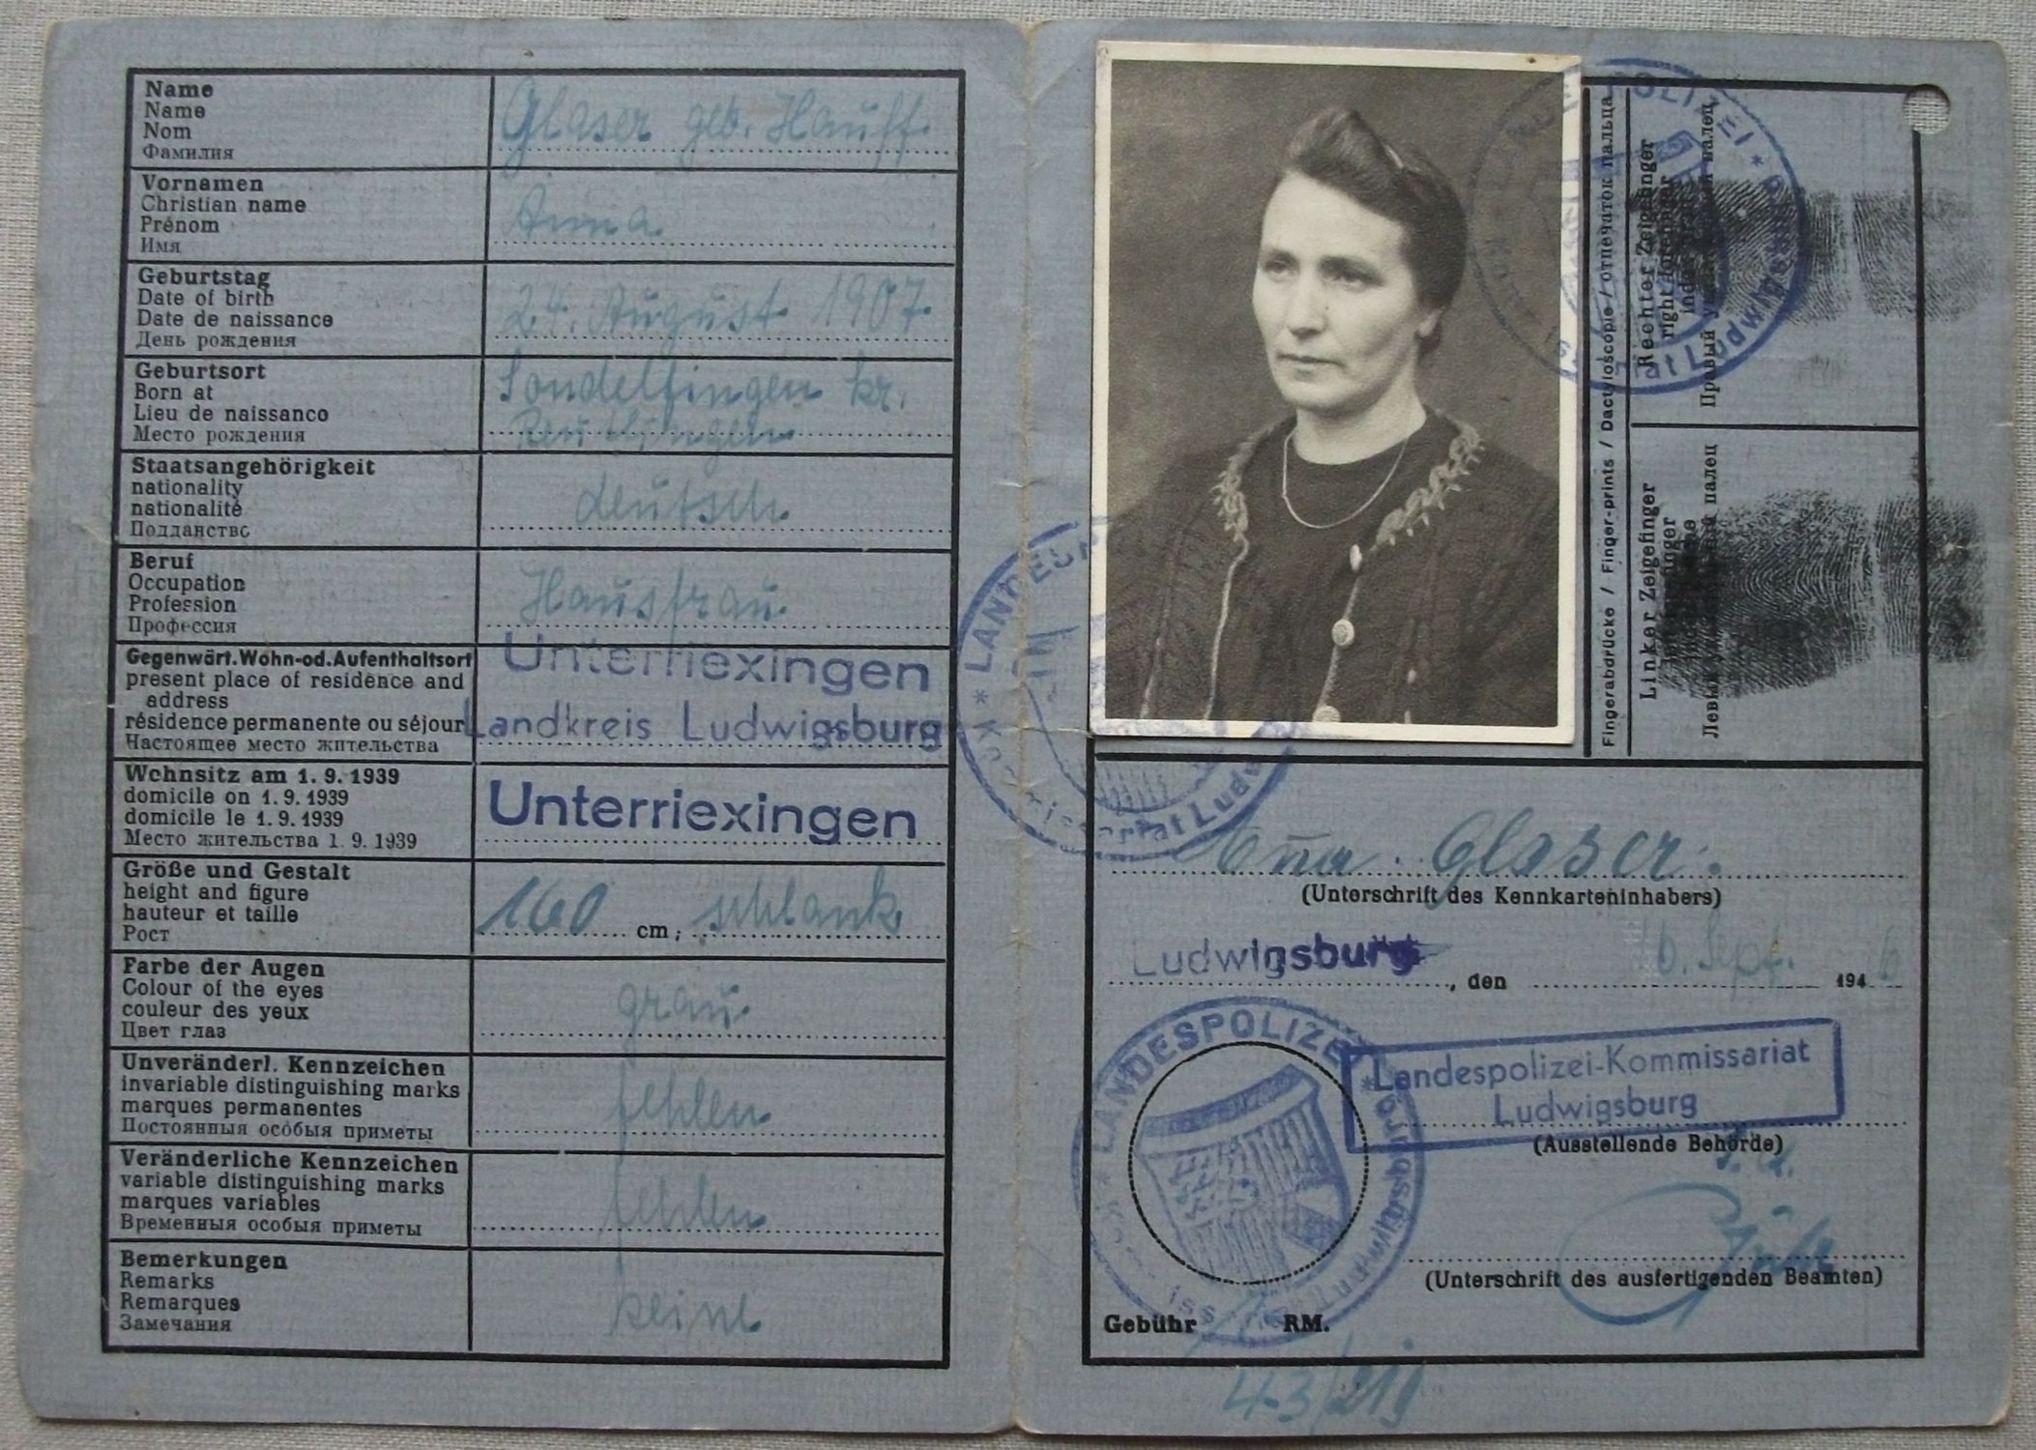 Name
Name
Nom
Фамилия
Glaser geb. Hauff
Vornamen
Christian name
Prénom
Имя
Anna
Geburtstag
Date of birth
Date de naissance
День рождения
24. August 1907
Geburtsort
Born at
Lieu de naissance
Место рождения
Sondelfingen kr.
Reutlingen
Staatsangehörigkeit
nationality
nationalité
Подданство
deutsch
Beruf
Occupation
Profession
Профессия
Hausfrau
Gegenwärt.Wohn-od.Aufenthaltsort
present place of residence and
address
résidence permanente ou séjour
Настоящее место жительства
Unterriexingen
Landkreis Ludwigsburg
Wohnsitz am 1. 9. 1939
domicile on 1. 9. 1939
domicile le 1. 9. 1939
Место жительства 1. 9. 1939
Unterriexingen
Größe und Gestalt
height and figure
hauteur et taille
Рост
160 cm; schlank
Farbe der Augen
Colour of the eyes
couleur des yeux
Цвет глаз
grau
Unveränderl. Kennzeichen
invariable distinguishing marks
marques permanentes
Постоянныя особыя приметы
fehlen
Veränderliche Kennzeichen
variable distinguishing marks
marques variables
Временныя особыя приметы
fehlen
Bemerkungen
Remarks
Remarques
Замечания
keine
Fingerabdrücke / Finger-prints / Dactyloscopie / отпечаток пальца
Rechter Zeigefinger
right
Правый палец
Linker Zeigefinger
Левый палец
LANDESPOLIZEI
Ludwigsburg
Glaser.
(Unterschrift des Kennkarteninhabers)
Ludwigsburg, den 6. Sept. 1946
LANDESPOLIZEI
Ludwigsburg
Landespolizei-Kommissariat
Ludwigsburg
(Ausstellende Behörde)
(Unterschrift des ausfertigenden Beamten)
Gebühr RM.
43/219